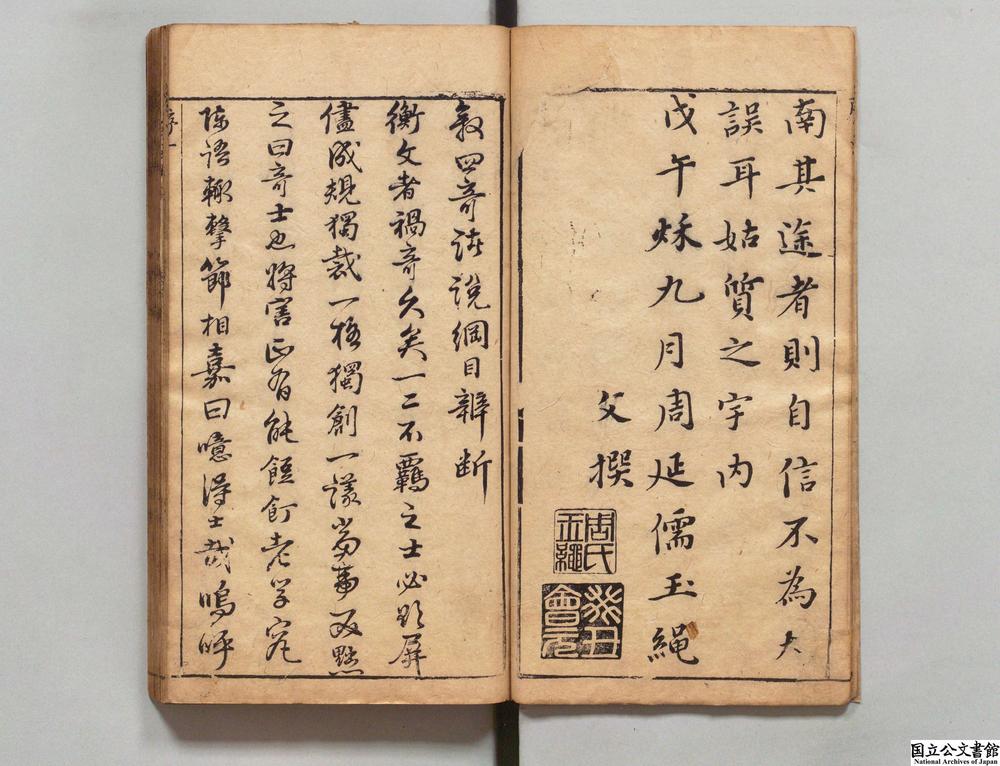 南其途者則自信不為大
誤耳姑質之宇内
戊午秌九月周延儒玉繩
父撰
周氏玉繩
癸丑會元
敘四奇註説綱目辯断
衡文者禍奇久矣一二不羈之士必欲屏
儘成規獨裁一格獨創一議當事取黜
之曰奇士也將害正有能餖飣老学究
陈语輒擊節相嘉曰噫得士哉嗚呼
序一
国立公文書館
National Archives of Japan